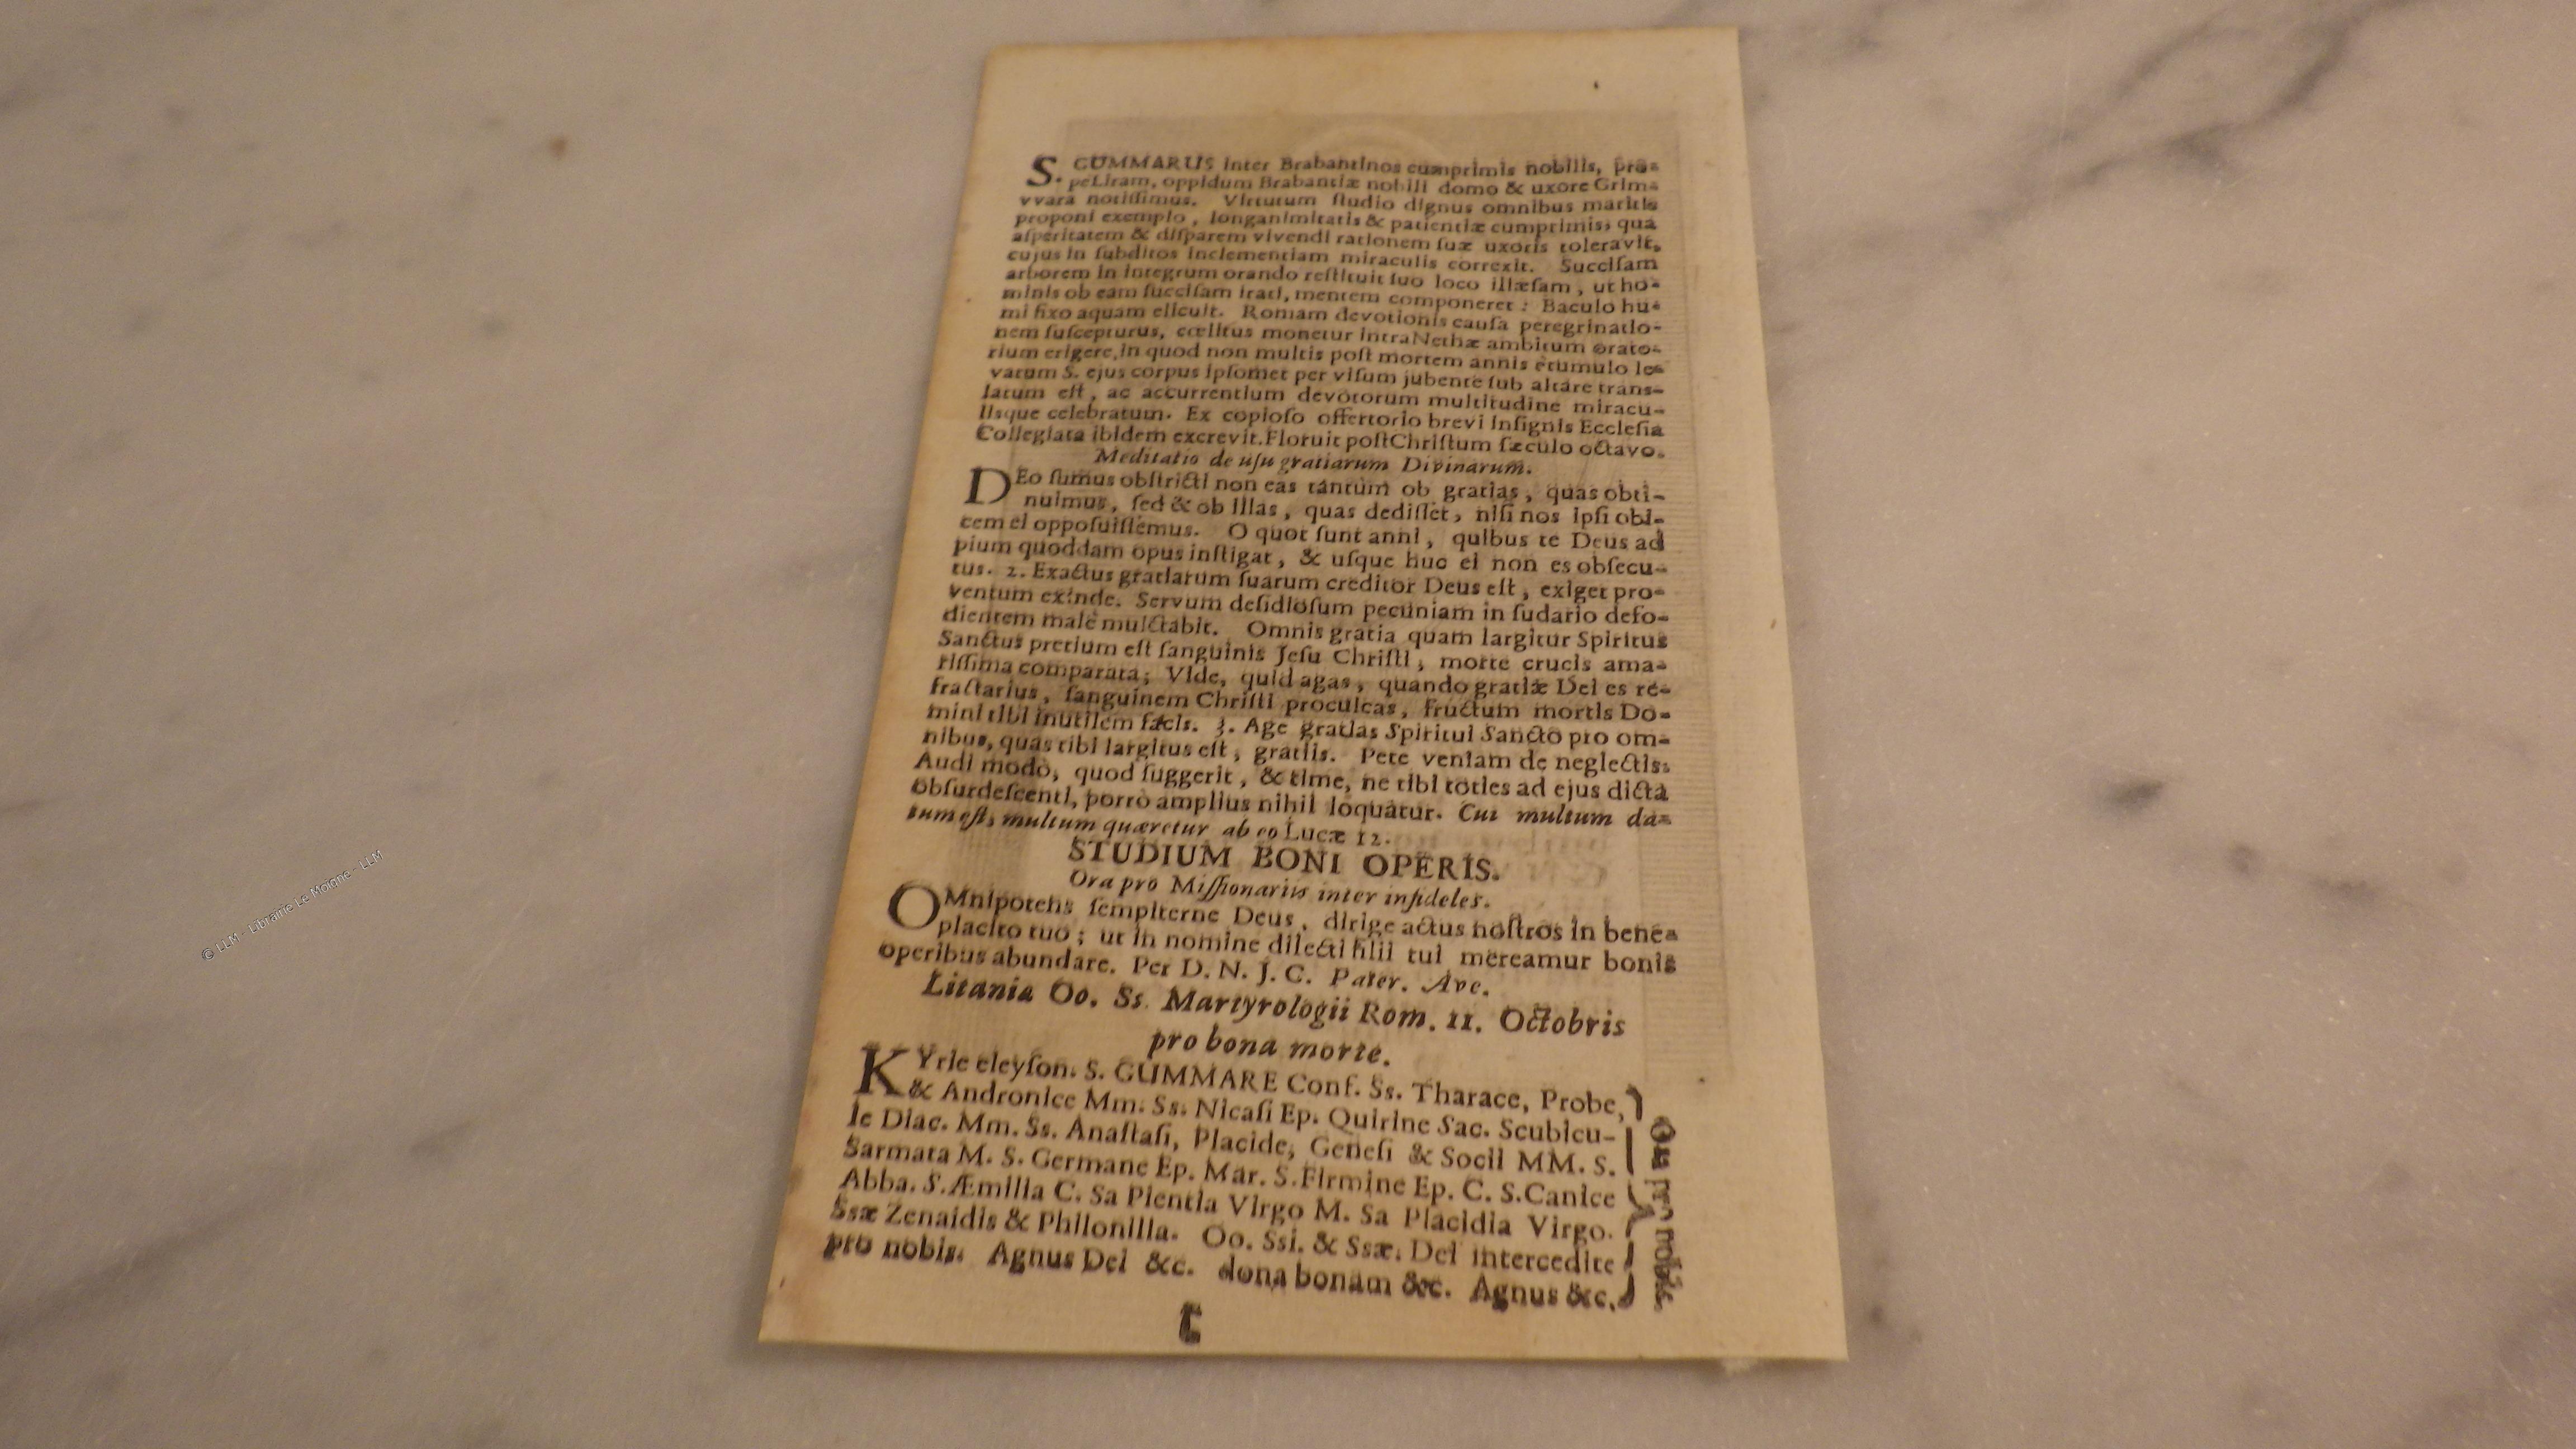 S. GUMMARUS inter Brabantinos cumprimis nobilis, pro-
peLiram, oppidum Brabantiæ nobili domo & uxore Grim-
vvara notiſſimus. Virtutum ſtudio dignus omnibus maritis
proponi exemplo, longanimitatis & patientiæ cumprimis; qua
aſperitatem & diſparem vivendi rationem ſuæ uxoris toleravit,
cujus in ſubditos inclementiam miraculis correxit. Succiſam
arborem in integrum orando reſtituit ſuo loco illæſam, ut ho-
minis ob eam ſucciſam irati, mentem componeret: Baculo hu-
mi fixo aquam elicuit. Romam devotionis cauſa peregrinatio-
nem ſuſcepturus, cœlitus monetur intraNethæ ambitum orato-
rium erigere,in quod non multis poſt mortem annis è tumulo le-
vatum S. ejus corpus ipſomet per viſum jubente ſub altare trans-
latum eſt, ac accurrentium devotorum multitudine miracu-
lisque celebratum. Ex copioſo offertorio brevi inſignis Eccleſia
Collegiata ibidem excrevit.Floruit poſtChriſtum ſæculo octavo.
Meditatio de uſu gratiarum Divinarum.
DEo ſumus obſtricti non eas tantùm ob gratias, quas obti-
nuimus, ſed & ob illas, quas dediſſet, niſi nos ipſi obi-
cem ei oppoſuiſſemus. O quot ſunt anni, quibus te Deus ad
pium quoddam opus inſtigat, & uſque huc ei non es obſecu-
tus. 2. Exactus gratiarum ſuarum creditor Deus eſt, exiget pro-
ventum exinde. Servum deſidioſum pecuniam in ſudario defo-
dientem malè mulctabit. Omnis gratia quam largitur Spiritus
Sanctus pretium eſt ſanguinis Jeſu Chriſti, morte crucis ama-
riſſima comparata; Vide, quid agas, quando gratiæ Dei es re-
fractarius, ſanguinem Chriſti proculcas, fructum mortis Do-
mini tibi inutilem facis. 3. Age gratias Spiritui Sancto pro om-
nibus, quas tibi largitus eſt, gratiis. Pete veniam de neglectis.
Audi modò, quod ſuggerit, & time, ne tibi toties ad ejus dicta
obſurdeſcenti, porrò amplius nihil loquatur. Cui multum da-
tum eſt, multum quæretur ab eo Lucæ 12.
STUDIUM BONI OPERIS.
Ora pro Miſſionariis inter infideles.
OMnipotens ſempiterne Deus, dirige actus noſtros in bene-
placito tuo; ut in nomine dilecti filii tui mereamur bonis
operibus abundare. Per D. N. J. C. Pater. Ave.
Litania Oo. Ss. Martyrologii Rom. 11. Octobris
pro bona morte.
KYrie eleyſon. S. GUMMARE Conf. Ss. Tharace, Probe,
& Andronice Mm. Ss. Nicaſi Ep. Quirine Sac. Scubicu-
le Diac. Mm. Ss. Anaſtaſi, Placide, Geneſi & Socii MM. S.
Sarmata M. S. Germane Ep. Mar. S.Firmine Ep. C. S.Canice
Abba. S.Æmilia C. Sa Pientia Virgo M. Sa Placidia Virgo.
Ssæ Zenaidis & Philonilla. Oo. Ssi. & Ssæ. Dei intercedite
pro nobis. Agnus Dei &c. dona bonam &c. Agnus &c.
Ora pro nobis.
© LLM - Librairie Le Moigne - LLM